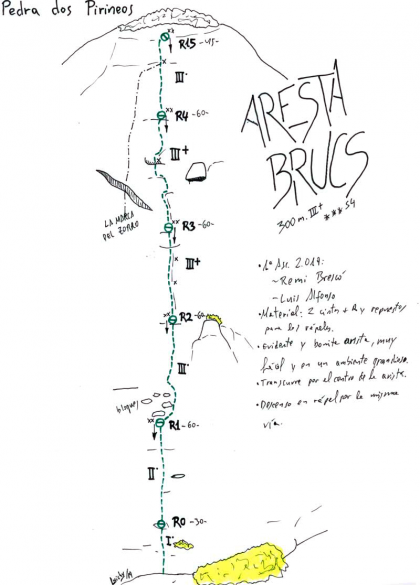 Pedra dos Pirineos
R15 -45-
III·
R4 -60-
III+
LA MORCA
DEL ZORRO
R3 -60-
III+
R2 -60-
III·
bloques
R1 -60-
II·
R0 -30-
I·
ARESTA
BRUCS
300 m. III+ *** S4
·1ª Asc. 2.019:
- Remi Brescó
- Luis Alfonso
·Material: 2 cintas + A y repuestos
para los rápeles.
·Evidente y bonita arista, muy
fácil y en un ambiente grandioso.
·Transcurre por el centro de la arista.
·Descenso en rápel por la misma
vía.